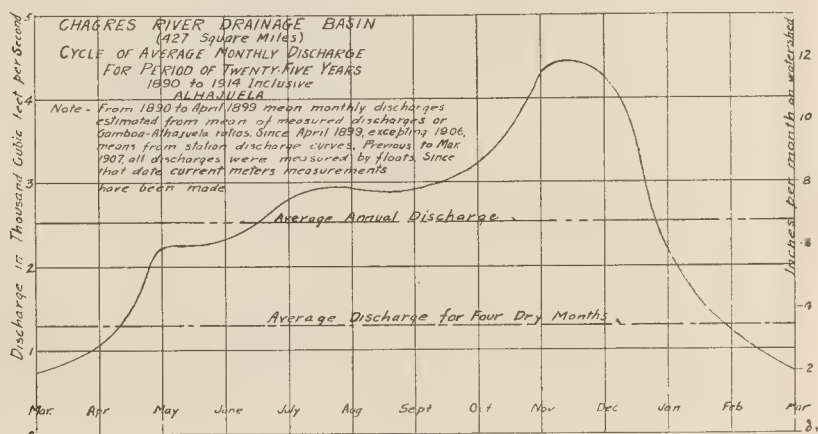 CHAGRES RIVER DRAINAGE BASIN
(427 Square Miles)
CYCLE OF AVERAGE MONTHLY DISCHARGE
FOR PERIOD OF TWENTY-FIVE YEARS
1890 to 1914 Inclusive
ALHAJUELA
Note - From 1890 to April 1899 mean monthly discharges
estimated from mean of measured discharges or
Gamboa-Alhajuela ratios. Since April 1899, excepting 1906,
means from station discharge curves. Previous to Mar.
1907, all discharges were measured by floats. Since
that date current meters measurements
have been made
Discharge in Thousand Cubic Feet per Second
5
4
3
2
1
0
Average Annual Discharge
Average Discharge for Four Dry Months
Inches per month on watershed
12
10
8
6
4
2
0
Mar. Apr May June July Aug Sept Oct Nov Dec Jan Feb Mar